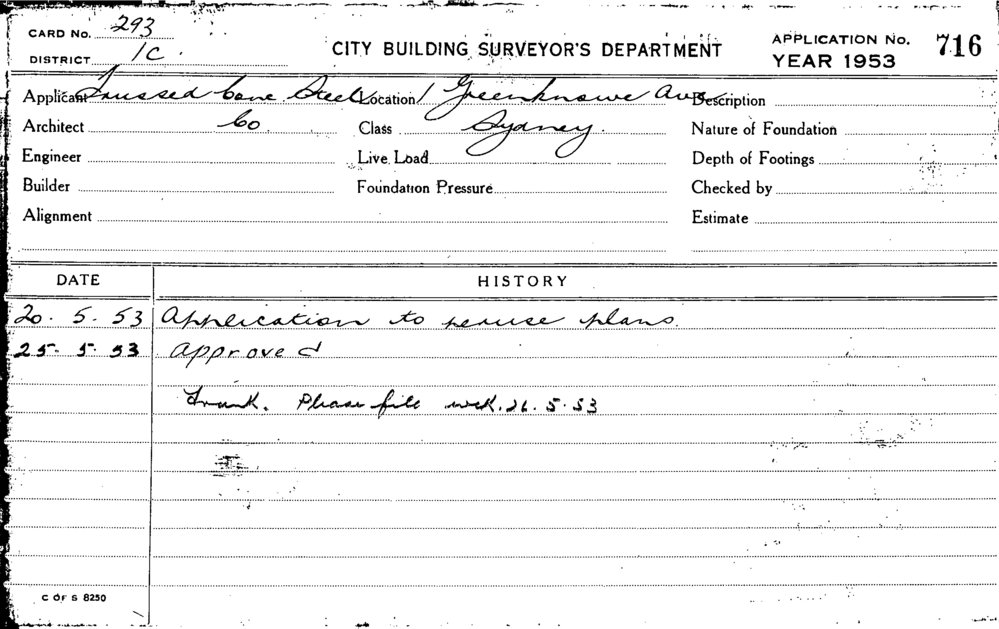 CARD No. 293
DISTRICT 1C.
CITY BUILDING SURVEYOR'S DEPARTMENT
APPLICATION No. 716
YEAR 1953
Applicant Trussed Conc Steel Location 1 Greenknowe Ave Description
Architect Co Class Sydney. Nature of Foundation
Engineer Live Load Depth of Footings
Builder Foundation Pressure Checked by
Alignment Estimate
DATE HISTORY
20. 5. 53 Application to peruse plans.
25. 5. 53 Approved
Frank. Please file 26.5.53
C OF S 8250